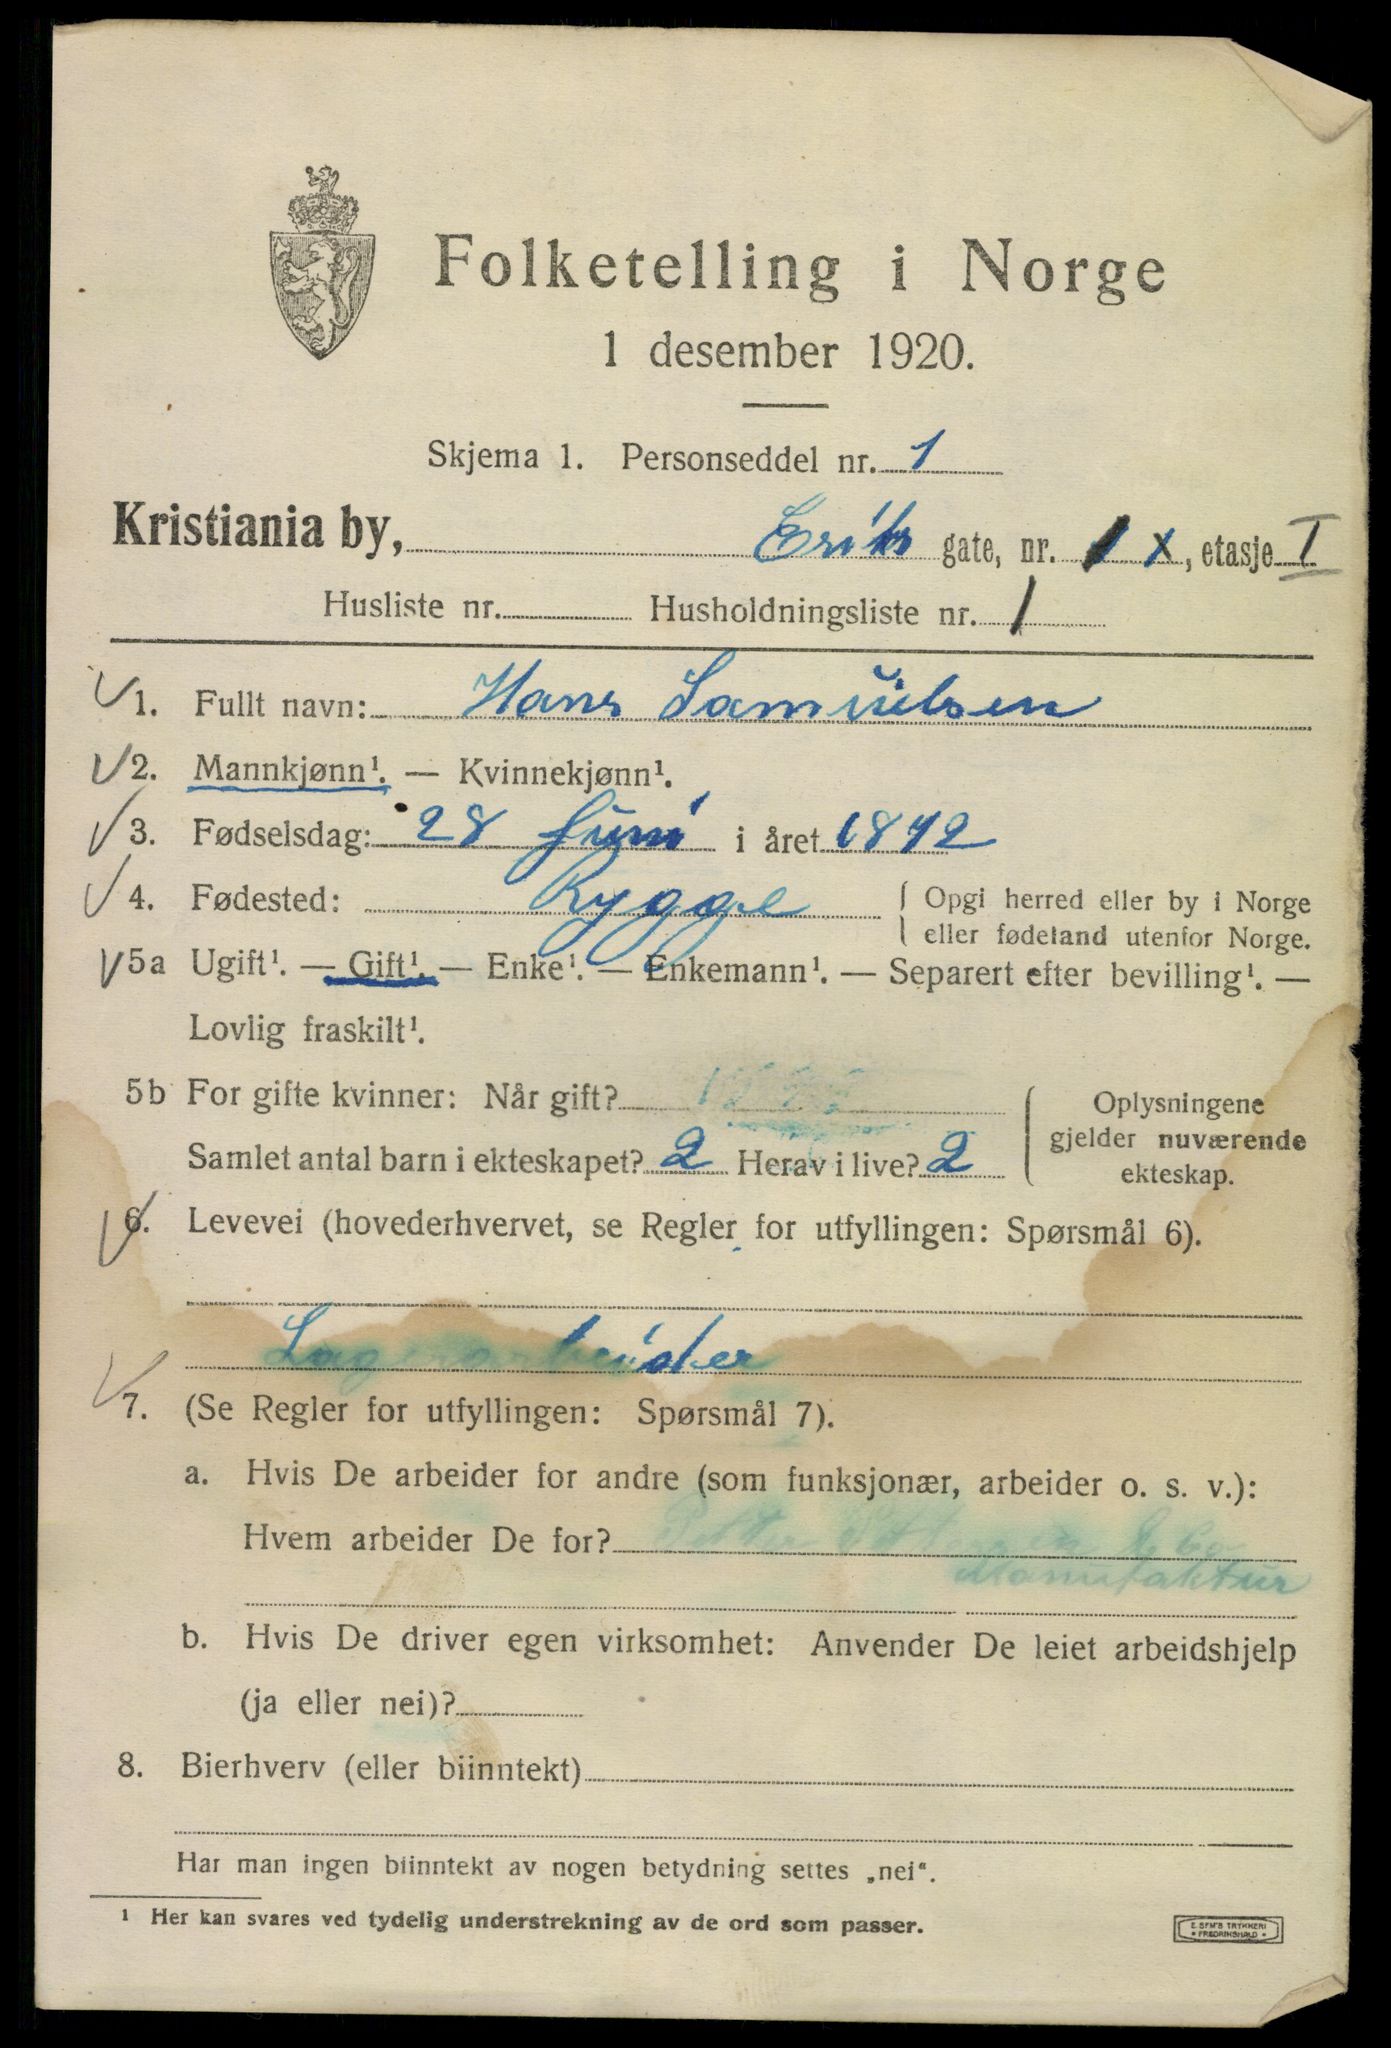 Folketelling i Norge
1 desember 1920.
Skjema 1. Personseddel nr. 1
Kristiania by, Eriks gate, nr. 1 X, etasje I
Husliste nr. Husholdningsliste nr. 1
1. Fullt navn: Hans Samuelsen
2. Mannkjønn¹. — Kvinnekjønn¹.
3. Fødselsdag: 28 Juni i året 1872
4. Fødested: Rygge { Opgi herred eller by i Norge
eller fødeland utenfor Norge.
5a Ugift¹. — Gift¹. — Enke¹. — Enkemann¹. — Separert efter bevilling¹. —
Lovlig fraskilt¹.
5b For gifte kvinner: Når gift?
Samlet antal barn i ekteskapet? 2 Herav i live? 2
{ Oplysningene
gjelder nuværende
ekteskap.
6. Levevei (hovederhvervet, se Regler for utfyllingen: Spørsmål 6).
Lagerarbeider
7. (Se Regler for utfyllingen: Spørsmål 7).
a. Hvis De arbeider for andre (som funksjonær, arbeider o. s. v.):
Hvem arbeider De for? & Co
Manufaktur
b. Hvis De driver egen virksomhet: Anvender De leiet arbeidshjelp
(ja eller nei)?
8. Bierhverv (eller biinntekt)
Har man ingen biinntekt av nogen betydning settes „nei“.
¹ Her kan svares ved tydelig understrekning av de ord som passer.
E. SEM'S TRYKKERI
• FREDRIKSHALD •